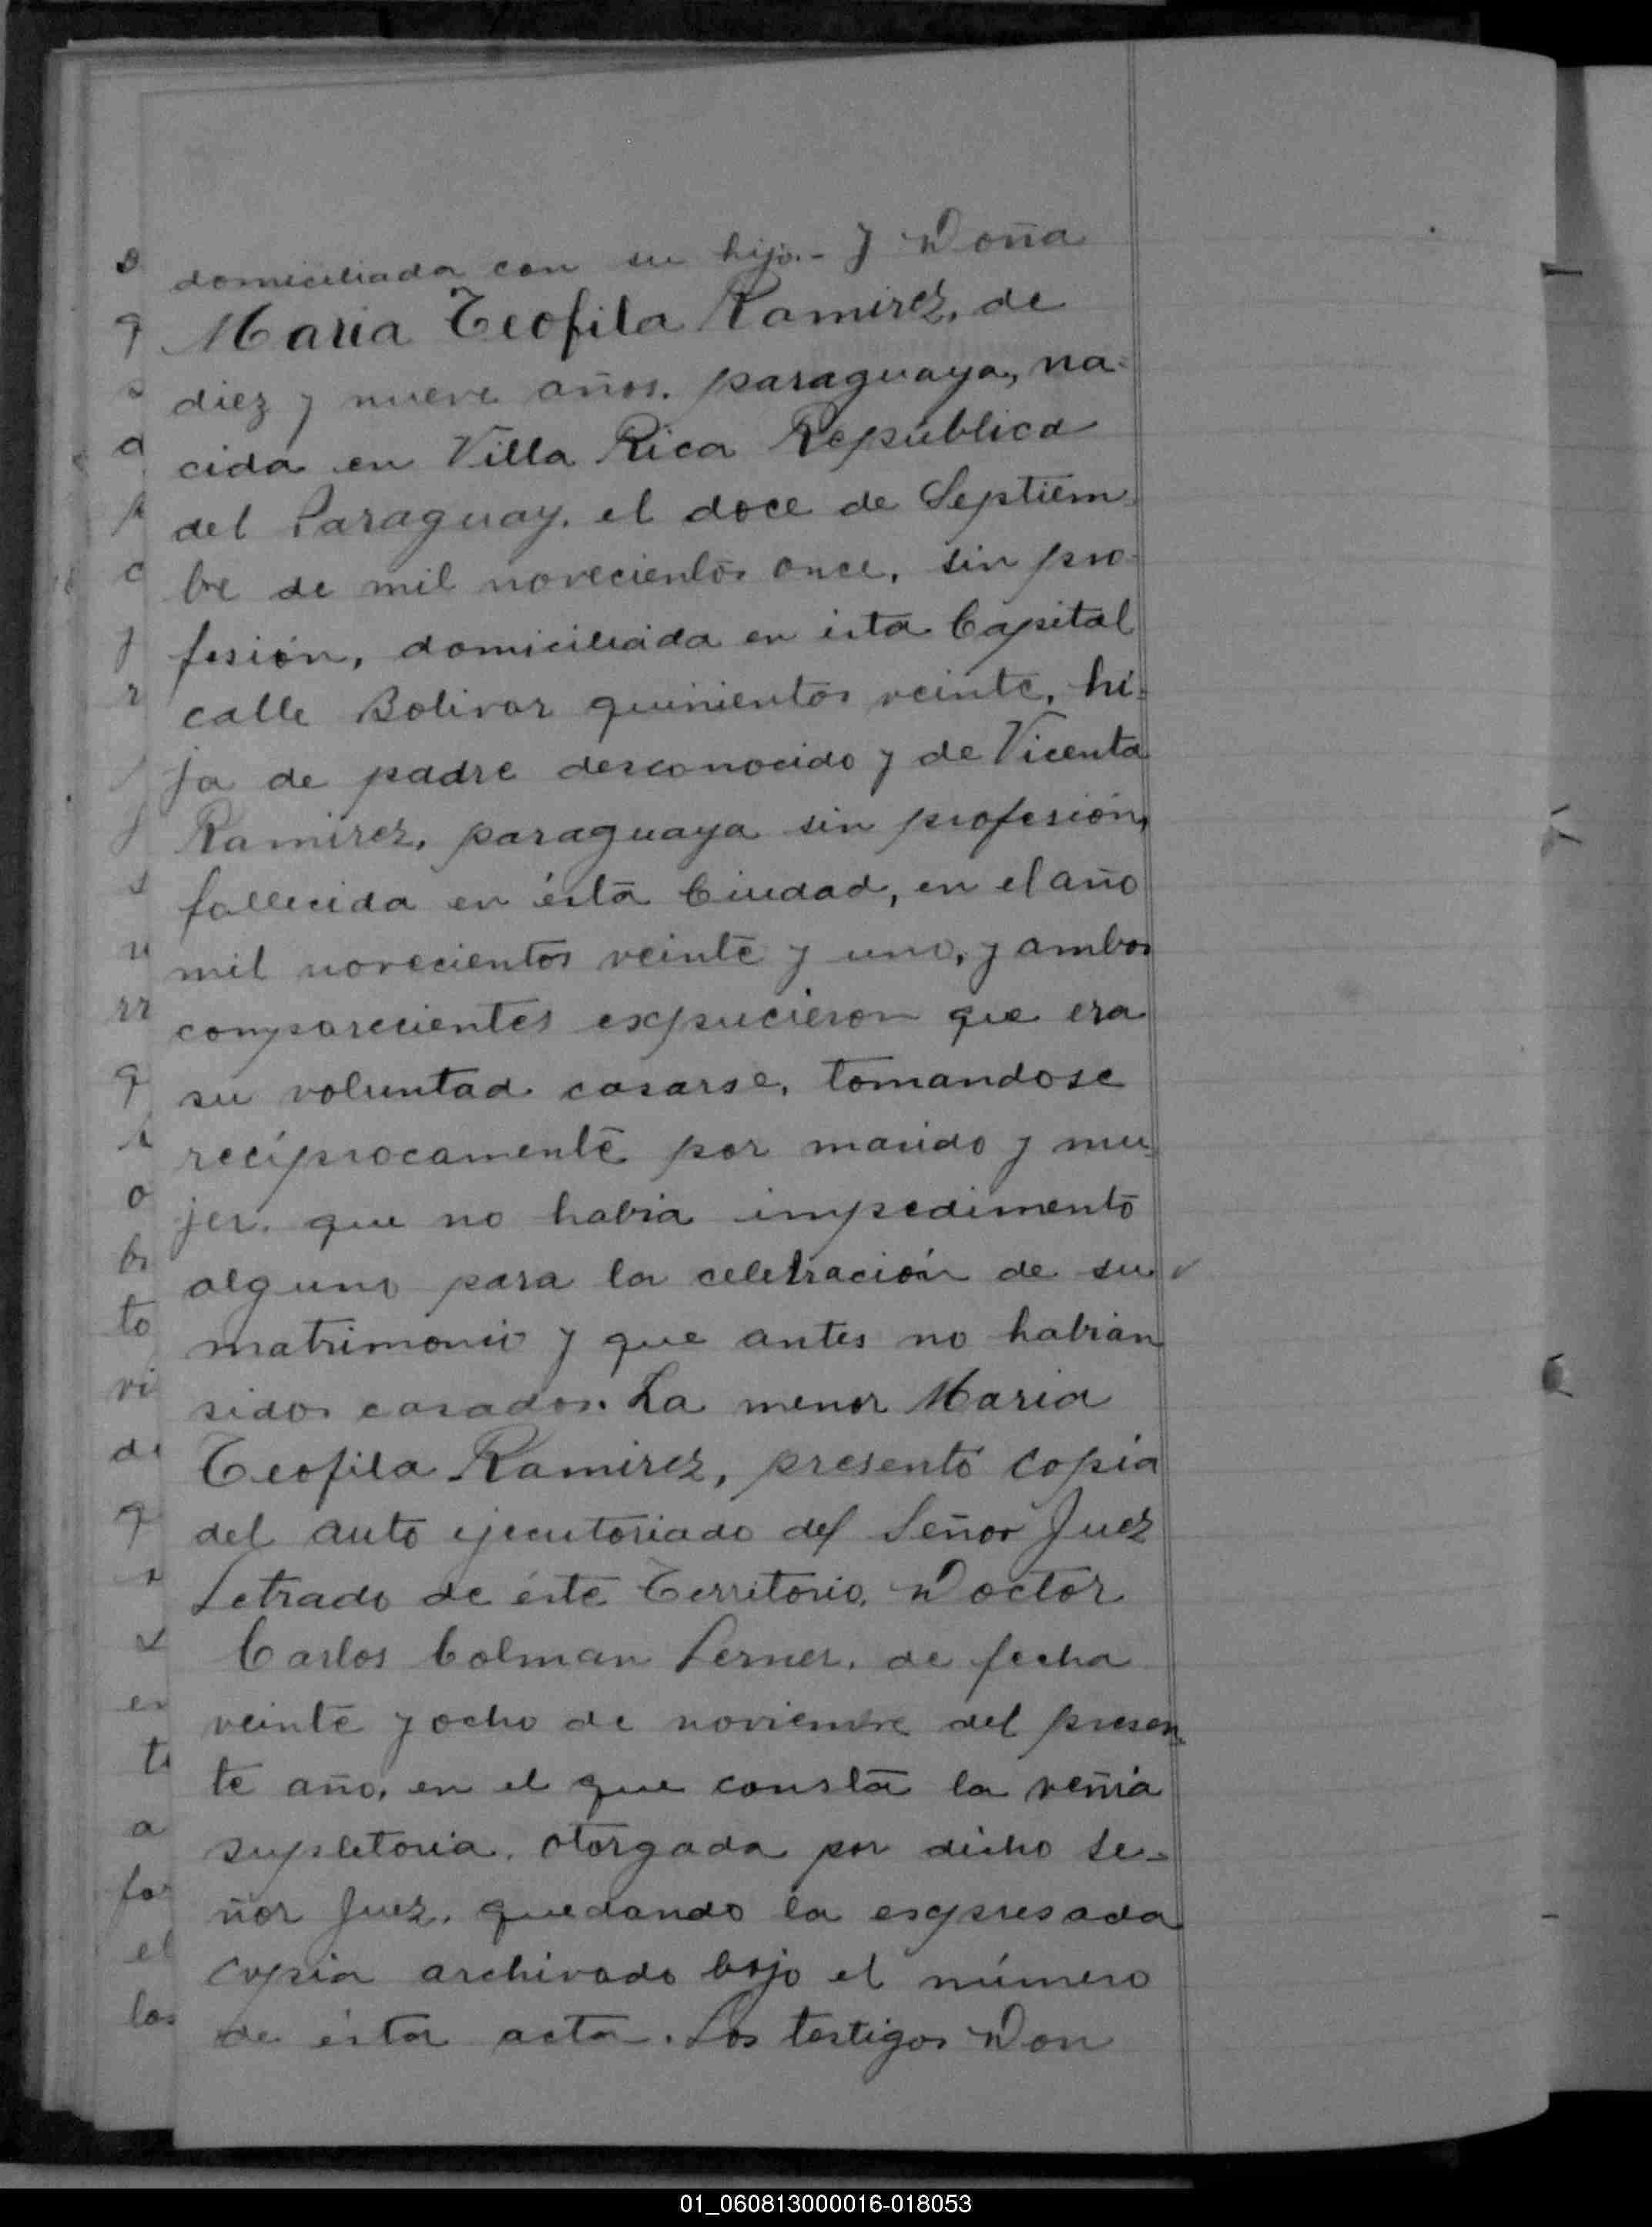 domiciliada con su hijo.- y Doña
Maria Teofila Ramirez, de
diez y nueve años. paraguaya, na-
cida en Villa Rica República
del Paraguay, el doce de Septiem-
bre de mil novecientos once, sin pro-
fesión, domiciliada en ésta Capital
calle Bolivar quinientos veinte, hi-
ja de padre desconocido y de Vicenta
Ramirez, paraguaya sin profesión,
fallecida en ésta Ciudad, en el año
mil novecientos veinte y uno, y ambos
comparecientes expucieron que era
su voluntad casarse, tomandose
recíprocamente por marido y mu-
jer, que no habia impedimento
alguno para la celebración de su
matrimonio y que antes no habian
sidos casados. La menor Maria
Teofila Ramirez, presentó copia
del auto ejecutoriado del Señor Juez
Letrado de éste Territorio, Doctor
Carlos Colman Lerner, de fecha
veinte y ocho de noviembre del presen-
te año, en el que consta la venia
supletoria, otorgada por dicho Se-
ñor Juez, quedando la expresada
copia archivado bajo el número
de ésta acta. Los testigos Don
01_060813000016-018053